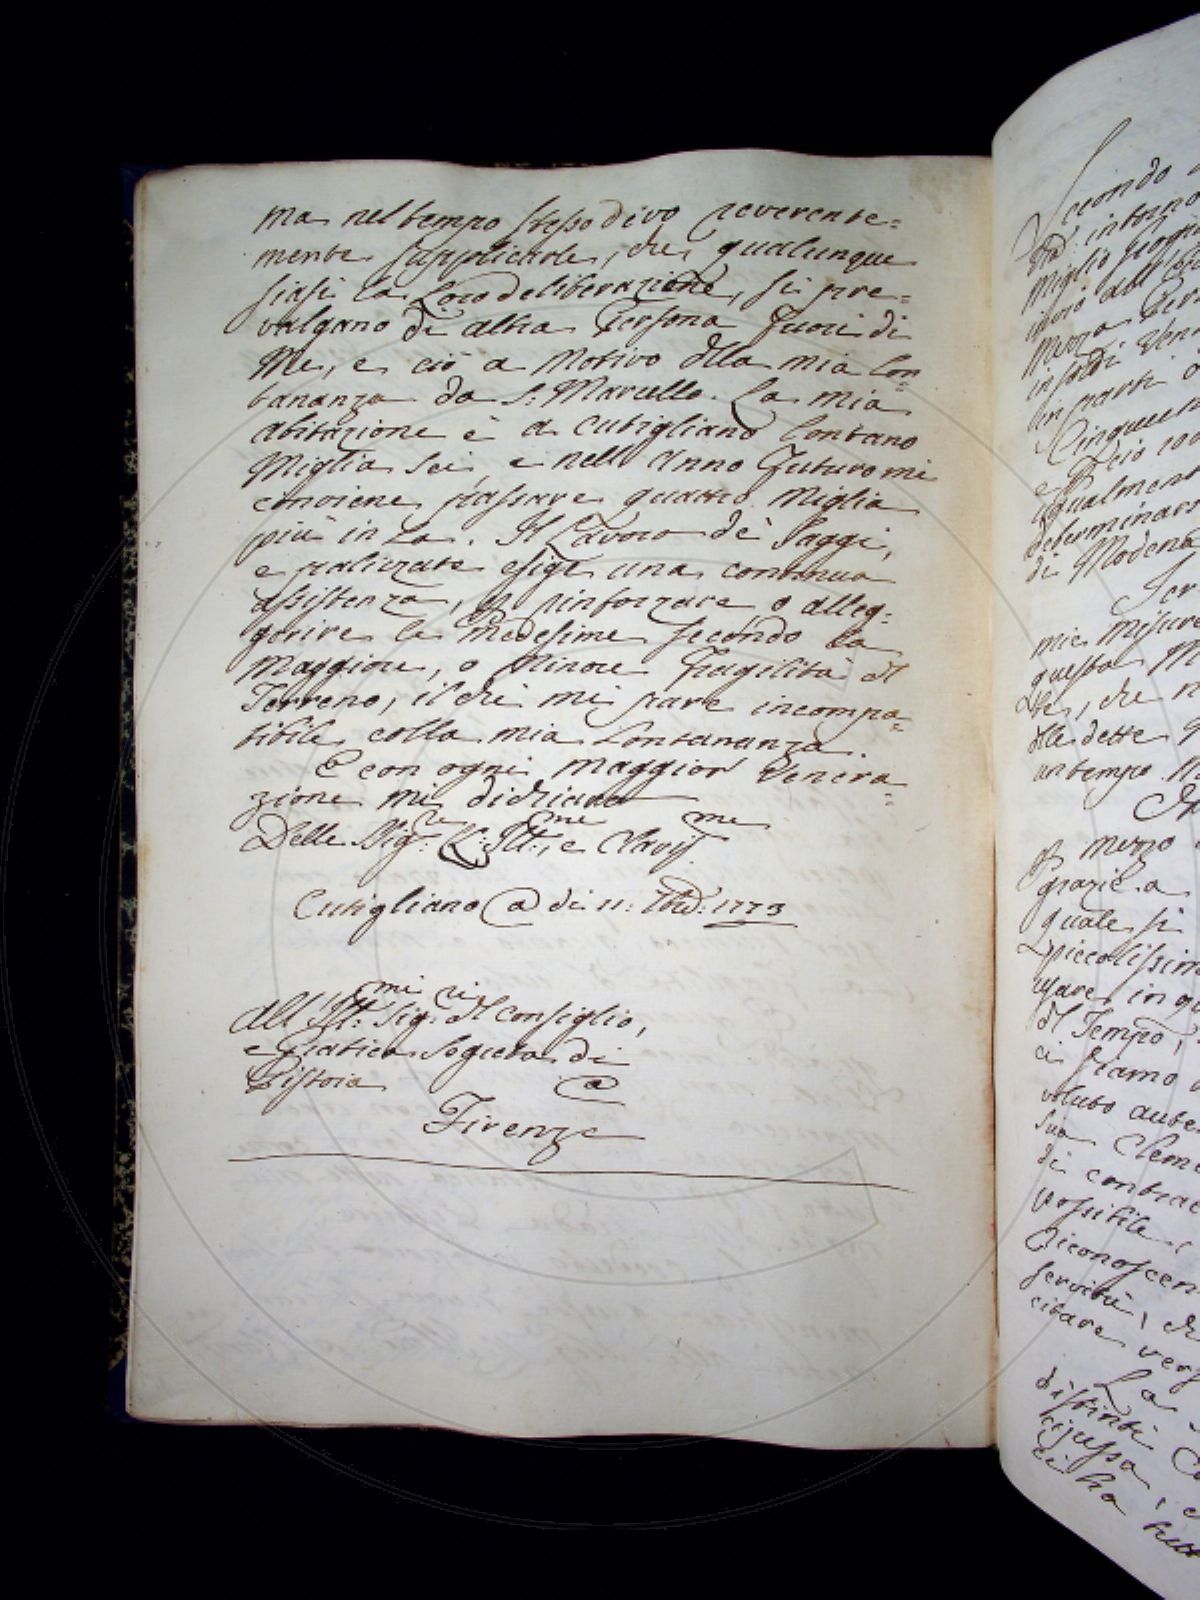 ma nel tempo stesso devo reverente=
mente supplicarle, che qualunque
siasi la Loro deliberazione, si pre=
valgano di altra Persona fuori di
Me, e ciò a Motivo della mia Lon=
tananza da S: Marcello. La mia
abitazione è a Cutigliano Lontano
Miglia Sei, e nell'Anno Futuro mi
conviene passare quattro Miglia
più in La. Il Lavoro de' Saggi,
e palizzate esige una continua
assistenza, p rinforzare o alleg=
gerire le Medesime secondo la
Maggiore, o Minore Fragilità del
Terreno, il che mi pare incompa=
tibile colla mia Lontananza.
E con ogni Maggior Venera=
zione mi dichiaro
Delle Sig:re Ill:me, e
Cutigliano a di 11: 1773
All' Ill:mi Sig:ri del Consiglio,
e Pratica Segreta di
Pistoia a
Firenze
Secondo
intorno
Miglio
Mezza
in soldi
in parti
Cinquecento
e ciò
Egualmente
determinare
di Modena
mie Misure
questa
che
delle dette
un tempo
p mezzo
grazie a
quale si
piccolissim
usare in
del Tempo,
ci siamo
voluto
Sua Cleme
di contrac
possibile,
riconoscen
servitù, che
citare vers
La
distinti
ci ha tutt